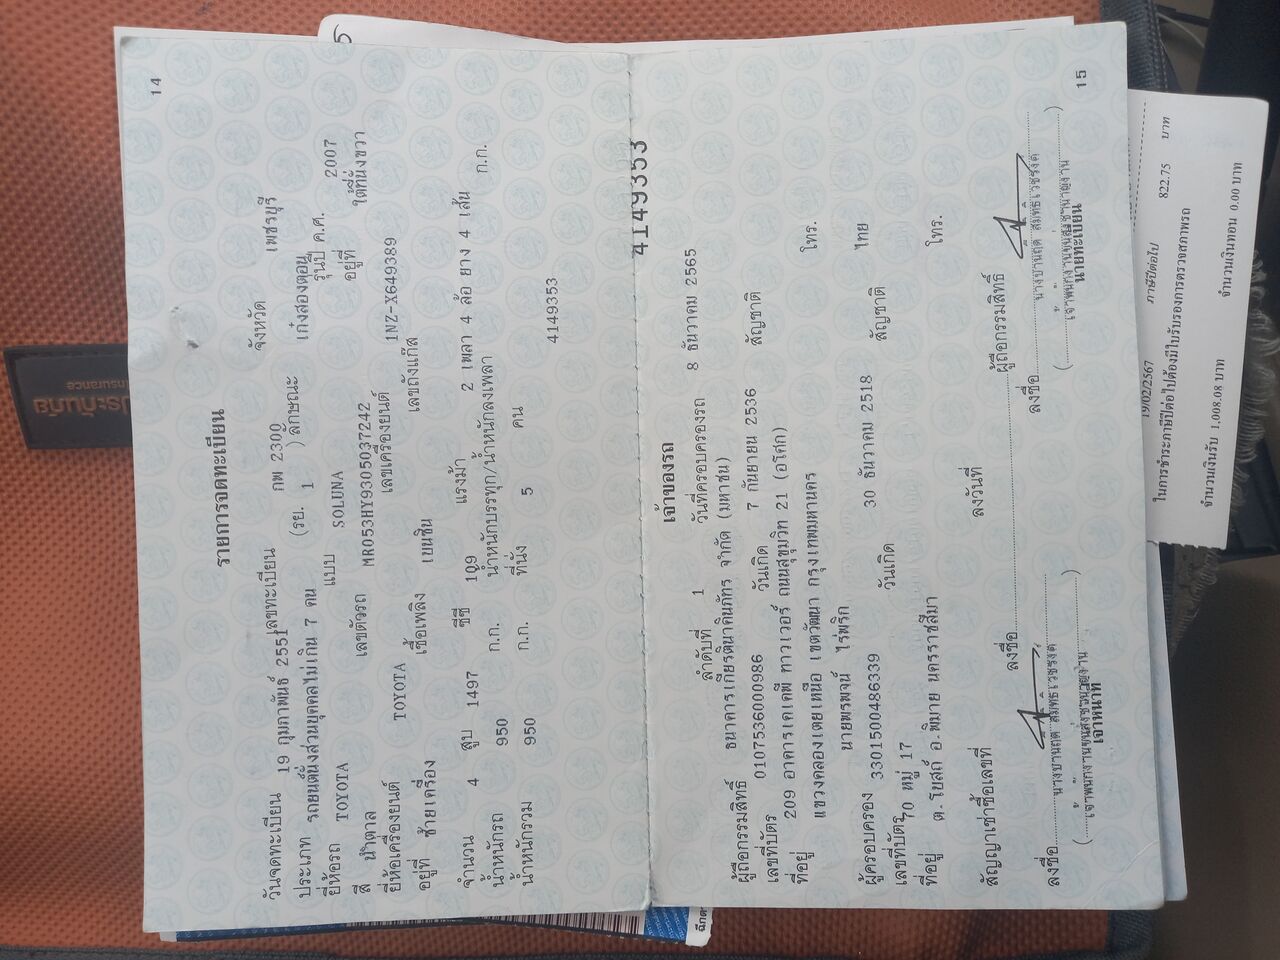 14
รายการจดทะเบียน
วันจดทะเบียน 19 กุมภาพันธ์ 2551 เลขทะเบียน กพ 2300 จังหวัด เพชรบุรี
ประเภท รถยนต์นั่งส่วนบุคคลไม่เกิน 7 คน (รย. 1 ) ลักษณะ เก๋งสองตอน
ยี่ห้อรถ TOYOTA แบบ SOLUNA รุ่นปี ค.ศ. 2007
สี น้ำตาล เลขตัวรถ MR053HY9305037242 อยู่ที่ ใต้ที่นั่งขวา
ยี่ห้อเครื่องยนต์ TOYOTA เลขเครื่องยนต์ 1NZ-X649389
อยู่ที่ ซ้ายเครื่อง เชื้อเพลิง เบนซิน เลขถังแก๊ส
จำนวน 4 สูบ 1497 ซีซี 109 แรงม้า 2 เพลา 4 ล้อ ยาง 4 เส้น
น้ำหนักรถ 950 ก.ก. น้ำหนักบรรทุก/น้ำหนักลงเพลา ก.ก.
น้ำหนักรวม 950 ก.ก. ที่นั่ง 5 คน
4149353
4149353
เจ้าของรถ
ลำดับที่ 1 วันที่ครอบครองรถ 8 ธันวาคม 2565
ผู้ถือกรรมสิทธิ์ ธนาคารเกียรตินาคินภัทร จำกัด (มหาชน)
เลขที่บัตร 0107536000986 วันเกิด 7 กันยายน 2536 สัญชาติ
ที่อยู่ 209 อาคารเคเคพี ทาวเวอร์ ถนนสุขุมวิท 21 (อโศก)
แขวงคลองเตยเหนือ เขตวัฒนา กรุงเทพมหานคร โทร.
ผู้ครอบครอง นายพรพจน์ ไร่พริก
เลขที่บัตร 3301500486339 วันเกิด 30 ธันวาคม 2518 สัญชาติ ไทย
ที่อยู่ 70 หมู่ 17
ต.โบสถ์ อ.พิมาย นครราชสีมา โทร.
สัญญาเช่าซื้อเลขที่ ลงวันที่
ลงชื่อ ผู้ถือกรรมสิทธิ์
ลงชื่อ ลงชื่อ
(เจ้าพนักงานขนส่งชำนาญงาน) (เจ้าพนักงานขนส่งชำนาญงาน)
เจ้าหน้าที่ นายทะเบียน
15
19/02/2567 ภาษีปีต่อไป 822.75 บาท
ในการชำระภาษีปีต่อไปต้องมีใบรับรองการตรวจสภาพรถ
จำนวนเงินรับ 1,008.08 บาท จำนวนเงินทอน 0.00 บาท
ประกันภัย
nsurance